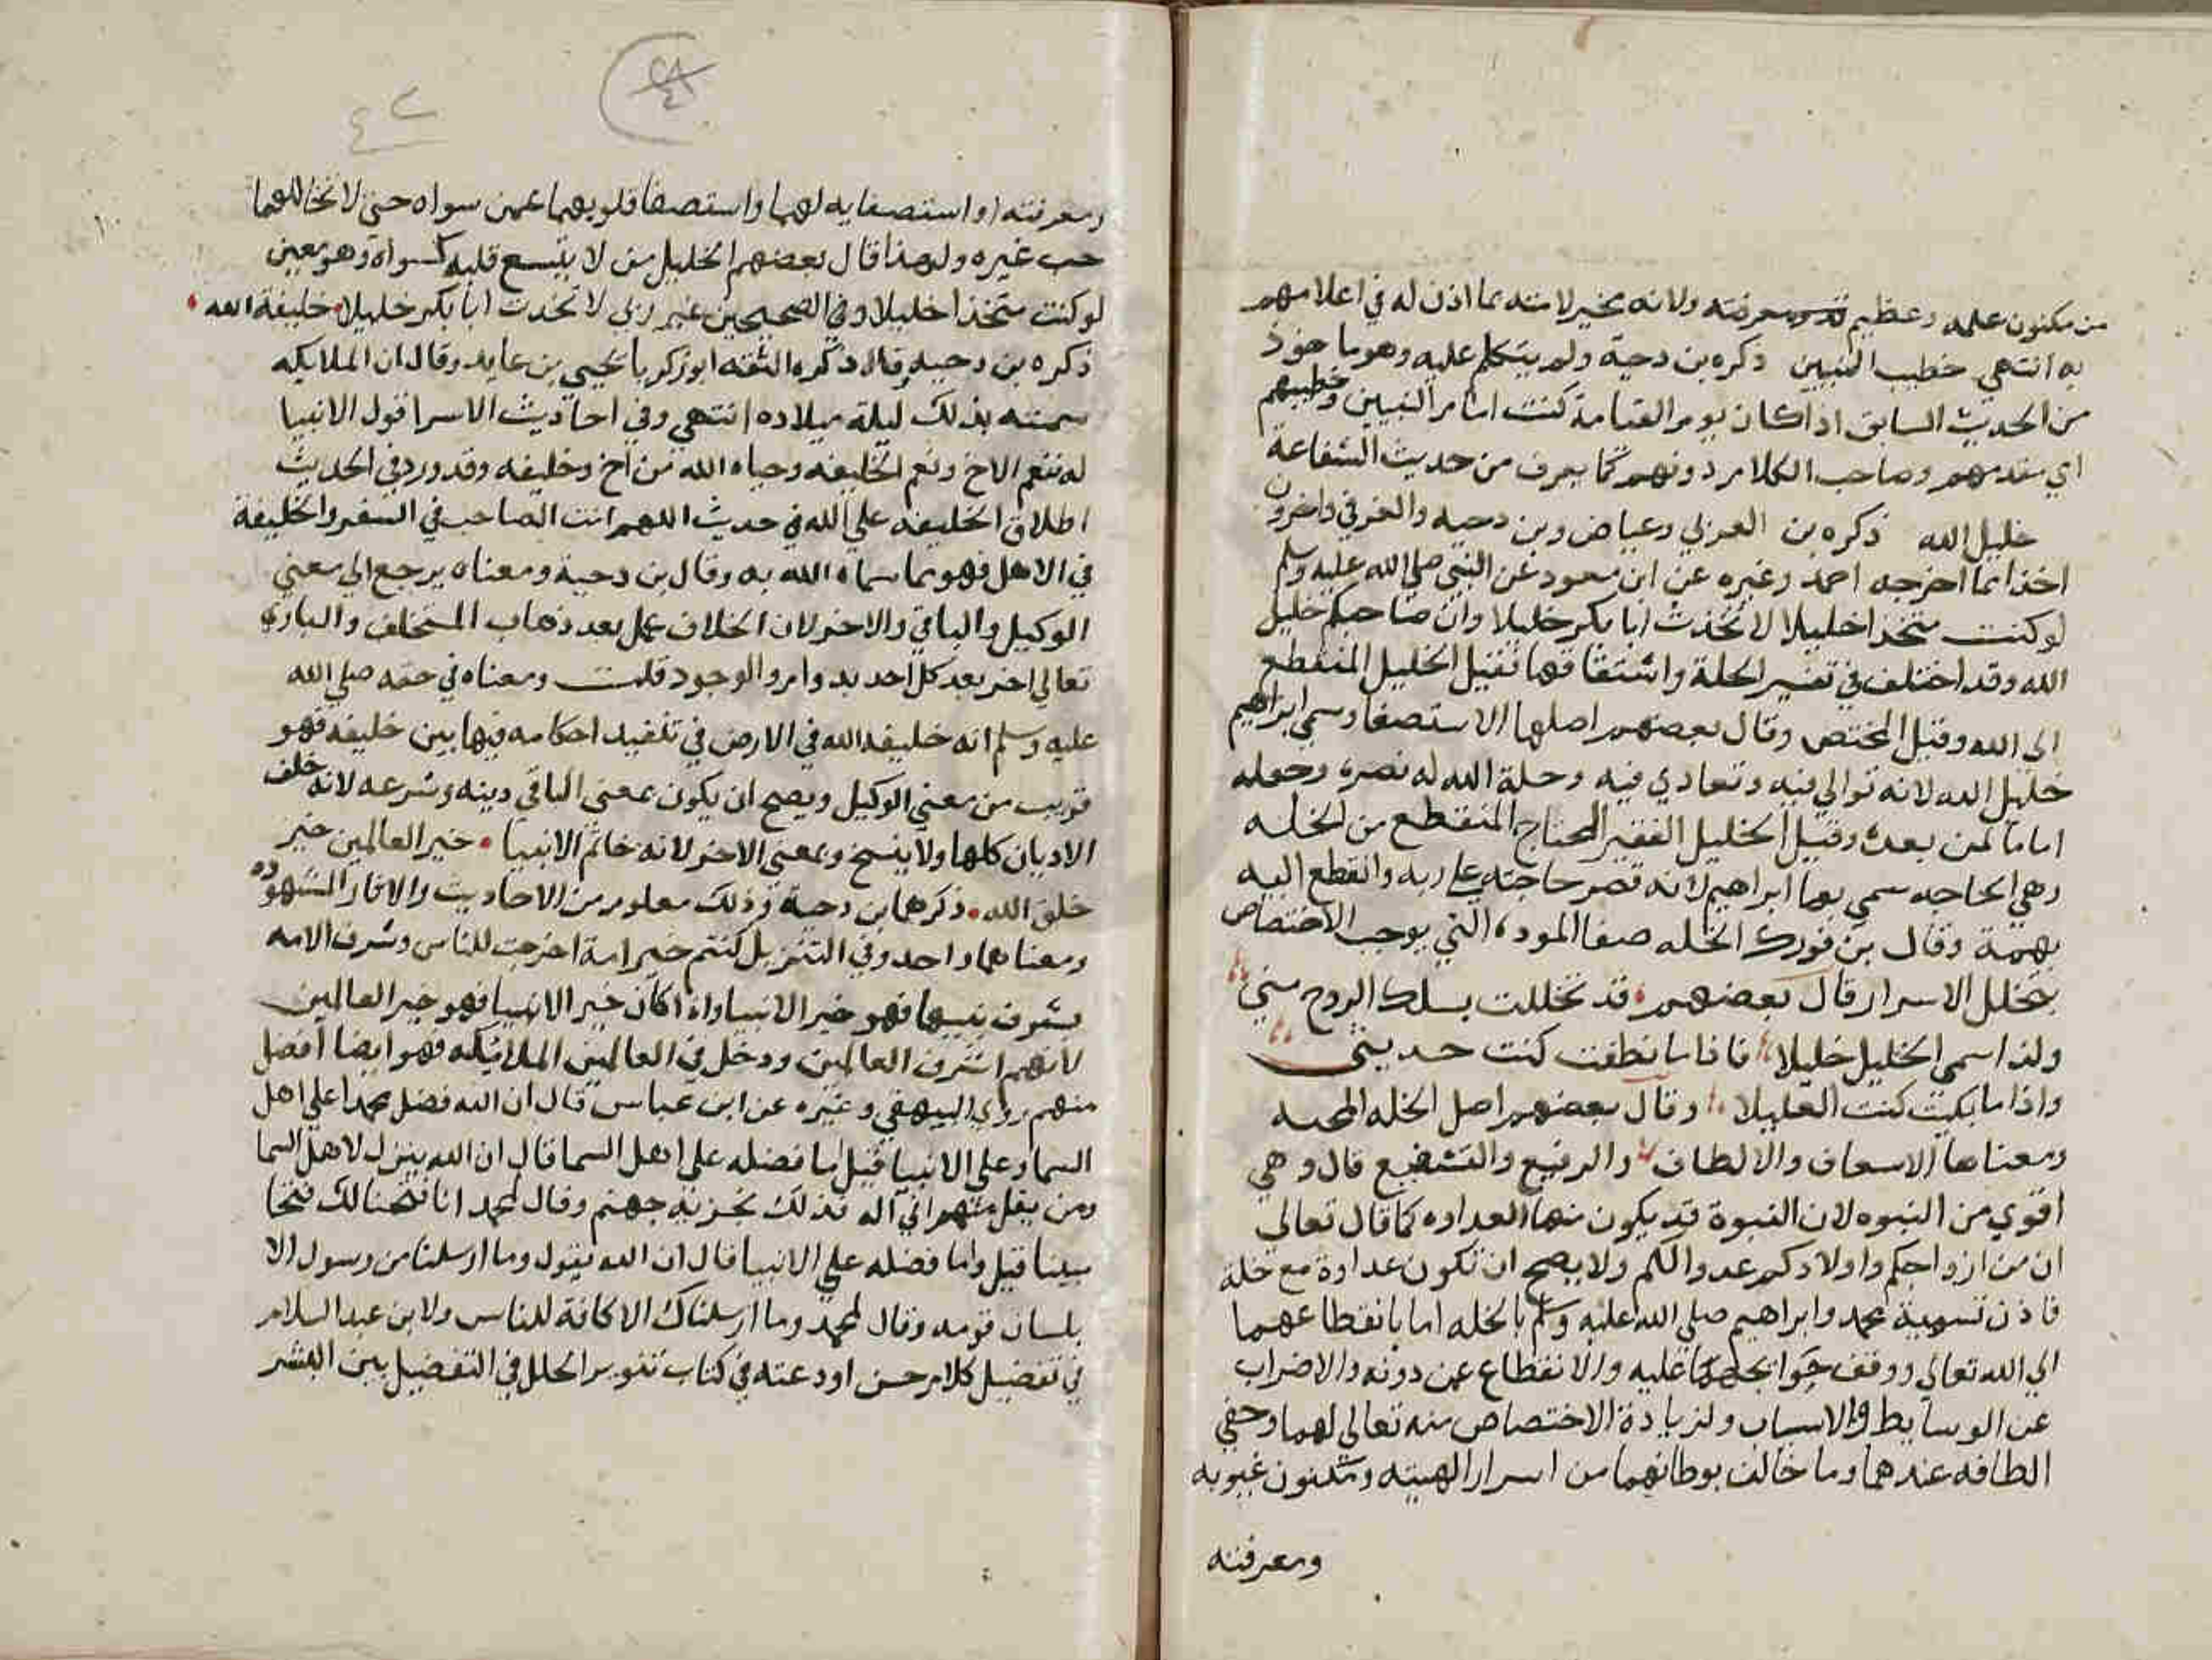 من مكنون علمه وعظيم قدره ومعرفته ولانه مخبر لامته بما اذن له في اعلامهم
به انتهي خطيب النبيين ذكره بن دحية ولم يتكلم عليه وهو ماخوذ
من الحديث السابق اذا كان يوم القيامة كنت امام النبيين وخطيبهم
اي مقدمهم وصاحب الكلام دونهم كما يعرف من حديث الشفاعة
خليل الله ذكره بن العربي وعياض وبن دحيه والعزفي واخرون
اخذا مما اخرجه احمد وغيره عن ابن مسعود عن النبي صلي الله عليه وسلم
لو كنت متخذا خليلا لاتخذت ابا بكر خليلا وان صاحبكم خليل
الله وقد اختلف في تفسير الخلة واشتقاقها فقيل الخليل المنقطع
الى الله وقيل المختص وقال بعضهم اصلها الاستصفا وسمي ابراهيم
خليل الله لانه توالي فيه وتعادي فيه وخلة الله له نصره وجعله
اماما لمن بعده وقيل الخليل الفقير المحتاج المنقطع من الخله
وهي الحاجه سمي بها ابراهيم لانه قصر حاجته علي ربه وانقطع اليه
بهمة وقال بن فورك الخله صفا الموده التي يوجب الاختصاص
بتخلل الاسرار قال بعضهم قد تخللت بسلك الروح مني
ولذا سمي الخليل خليلا فاذا ما نطقت كنت حديثي
واذا ما بكيت كنت العليلا وقال بعضهم اصل الخله المحبه
ومعناها الاسعاف والالطاف والرفيع والتشفيع قال وهي
اقوي من النبوه لان النبوة قد يكون منها العداوه كما قال تعالى
ان من ازواجكم واولادكم عدوا لكم ولا يصح ان تكون عداوة مع خلة
فاذن تسمية محمد وابراهيم صلي الله عليه وسلم بالخله اما بانقطاعهما
الي الله تعالي ووقف حوائجهما عليه والانقطاع عمن دونه والاضراب
عن الوسايط والاسباب ولزيادة الاختصاص منه تعالي لهما وخفي
الطافه عندهما وما خالف بوطانهما من اسرار الهيته ومكنون غيوبه
ومعرفته
ومعرفته او استصفايه لهما واستصفا قلوبهما عمن سواه حتى لا تخاللهما
حب غيره ولهذا قال بعضهم الخليل من لا يتسع قلبه لسواه وهو معين
لو كنت متخذا خليلا وفي الصحيحين غير ربي لاتخذت ابا بكر خليلا خليفة الله
ذكره بن دحيه وقال ذكره الثقه ابو زكريا يحيي بن عايد وقال ان الملايكه
سمته بذلك ليلة ميلاده انتهي وفي احاديث الاسرا قول الانبيا
له نعم الاخ ونعم الخليفه وحياه الله من اخ وخليفه وقد ورد في الحديث
اطلاق الخليفه علي الله في حديث اللهم انت الصاحب في السفر والخليفة
في الاهل فهو مما سماه الله به وقال بن دحية ومعناه يرجع الي معني
الوكيل والباقي والاخر لان الخلاف عمل بعد ذهاب المستخلف والباري
تعالي اخر بعد كل احد بدوامر والوجود قلت ومعناه في حقه صلي الله
عليه وسلم انه خليفة الله في الارض في تنفيذ احكامه فيها بين خليقه فهو
قريب من معني الوكيل ويصح ان يكون بمعني الباقي دينه وشرعه لانه خلف
الاديان كلها ولا ينسخ وبمعني الاخر لانه خاتم الانبيا خير العالمين خير
خلق الله ذكرهما بن دحية وذلك معلوم من الاحاديث والاثار المشهوره
ومعناهما واحد وفي التنزيل كنتم خير امة اخرجت للناس وشرف الامه
بشرف نبيها فهو خير الانبيا واذا كان خير الانبيا فهو خير العالمين
لانهم اشرف العالمين ودخل في العالمين الملايكه فهو ايضا افضل
منهم روي البيهقي وغيره عن ابن عباس قال ان الله فضل محمدا علي اهل
السما وعلي الانبيا قيل ما فضله علي اهل السما قال ان الله ينزل لاهل السما
ومن يقل منهم اني اله فذلك نجزيه جهنم وقال لمحمد انا فتحنا لك فتحا
مبينا قيل واما فضله علي الانبيا قال ان الله يقول وما ارسلنا من رسول الا
بلسان قومه وقال لمحمد وما ارسلناك الا كافة للناس ولابن عبد السلام
في تفضيل كلام حسن اودعته في كتاب تنوير الحلل في التفضيل بين البشر